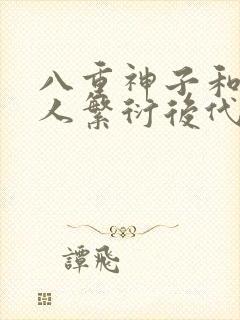 八重神子和
人繁衍後代
譚飛